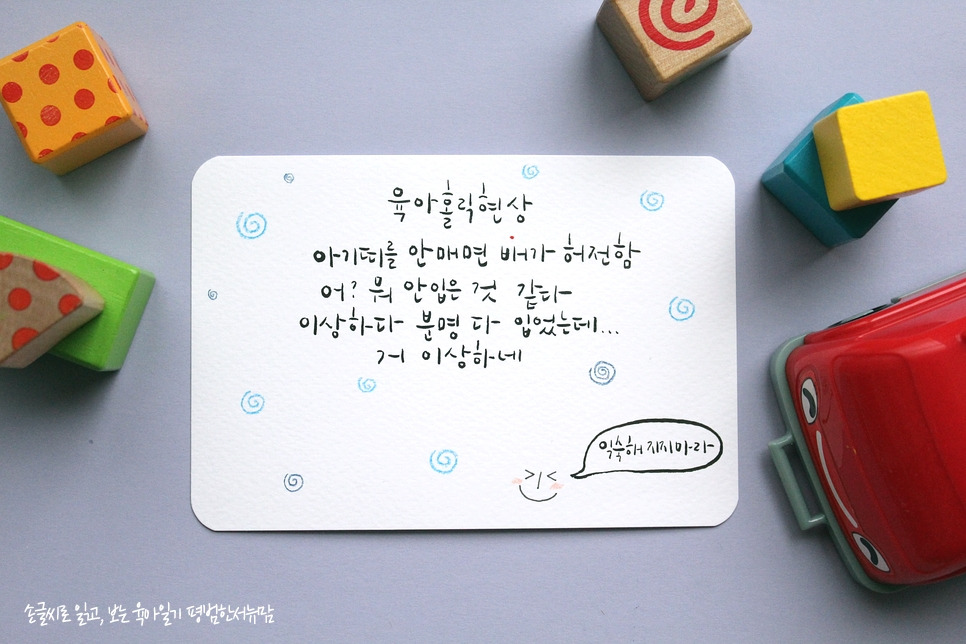 육아홀릭현상
아기띠를 안매면 배가 허전함
어? 뭐 안입은 것 같다
이상하다 분명 다 입었는데...
거 이상하네
익숙해 지지마라
손글씨로 읽고, 보는 육아일기 평범한서뉴맘